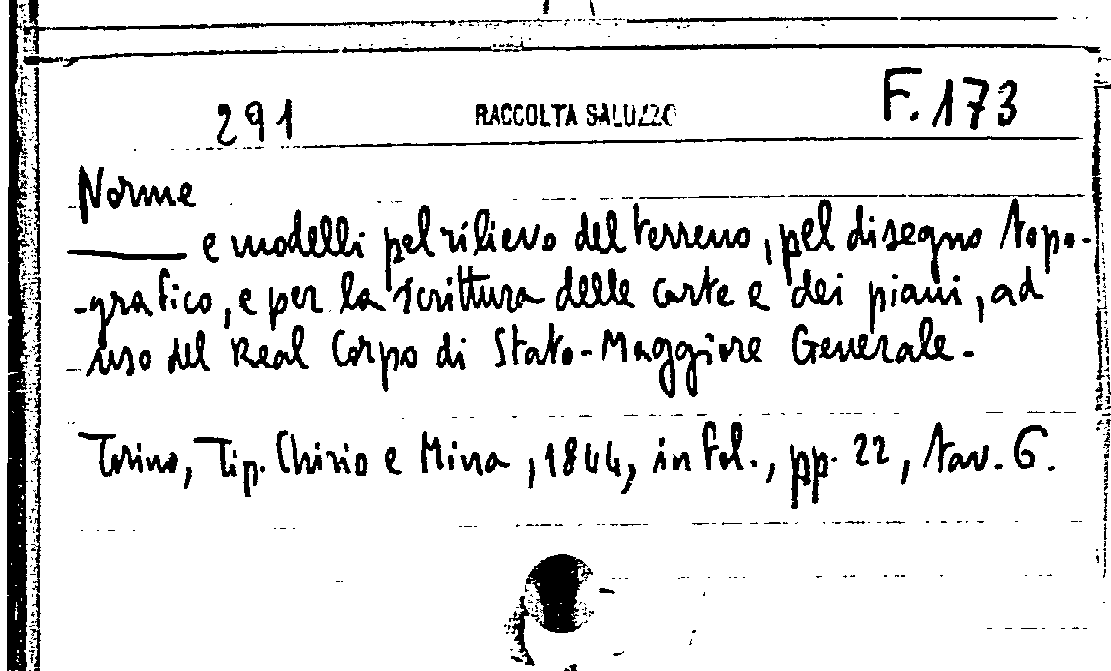 291 RACCOLTA SALUZZO F.173
Norme
——— e modelli pel rilievo del terreno, pel disegno topo-
-grafico, e per la scrittura delle carte e dei piani, ad
uso del Real Corpo di Stato-Maggiore Generale.
Torino, Tip. Chirio e Mina, 1844, in fol., pp. 22, tav. 6.